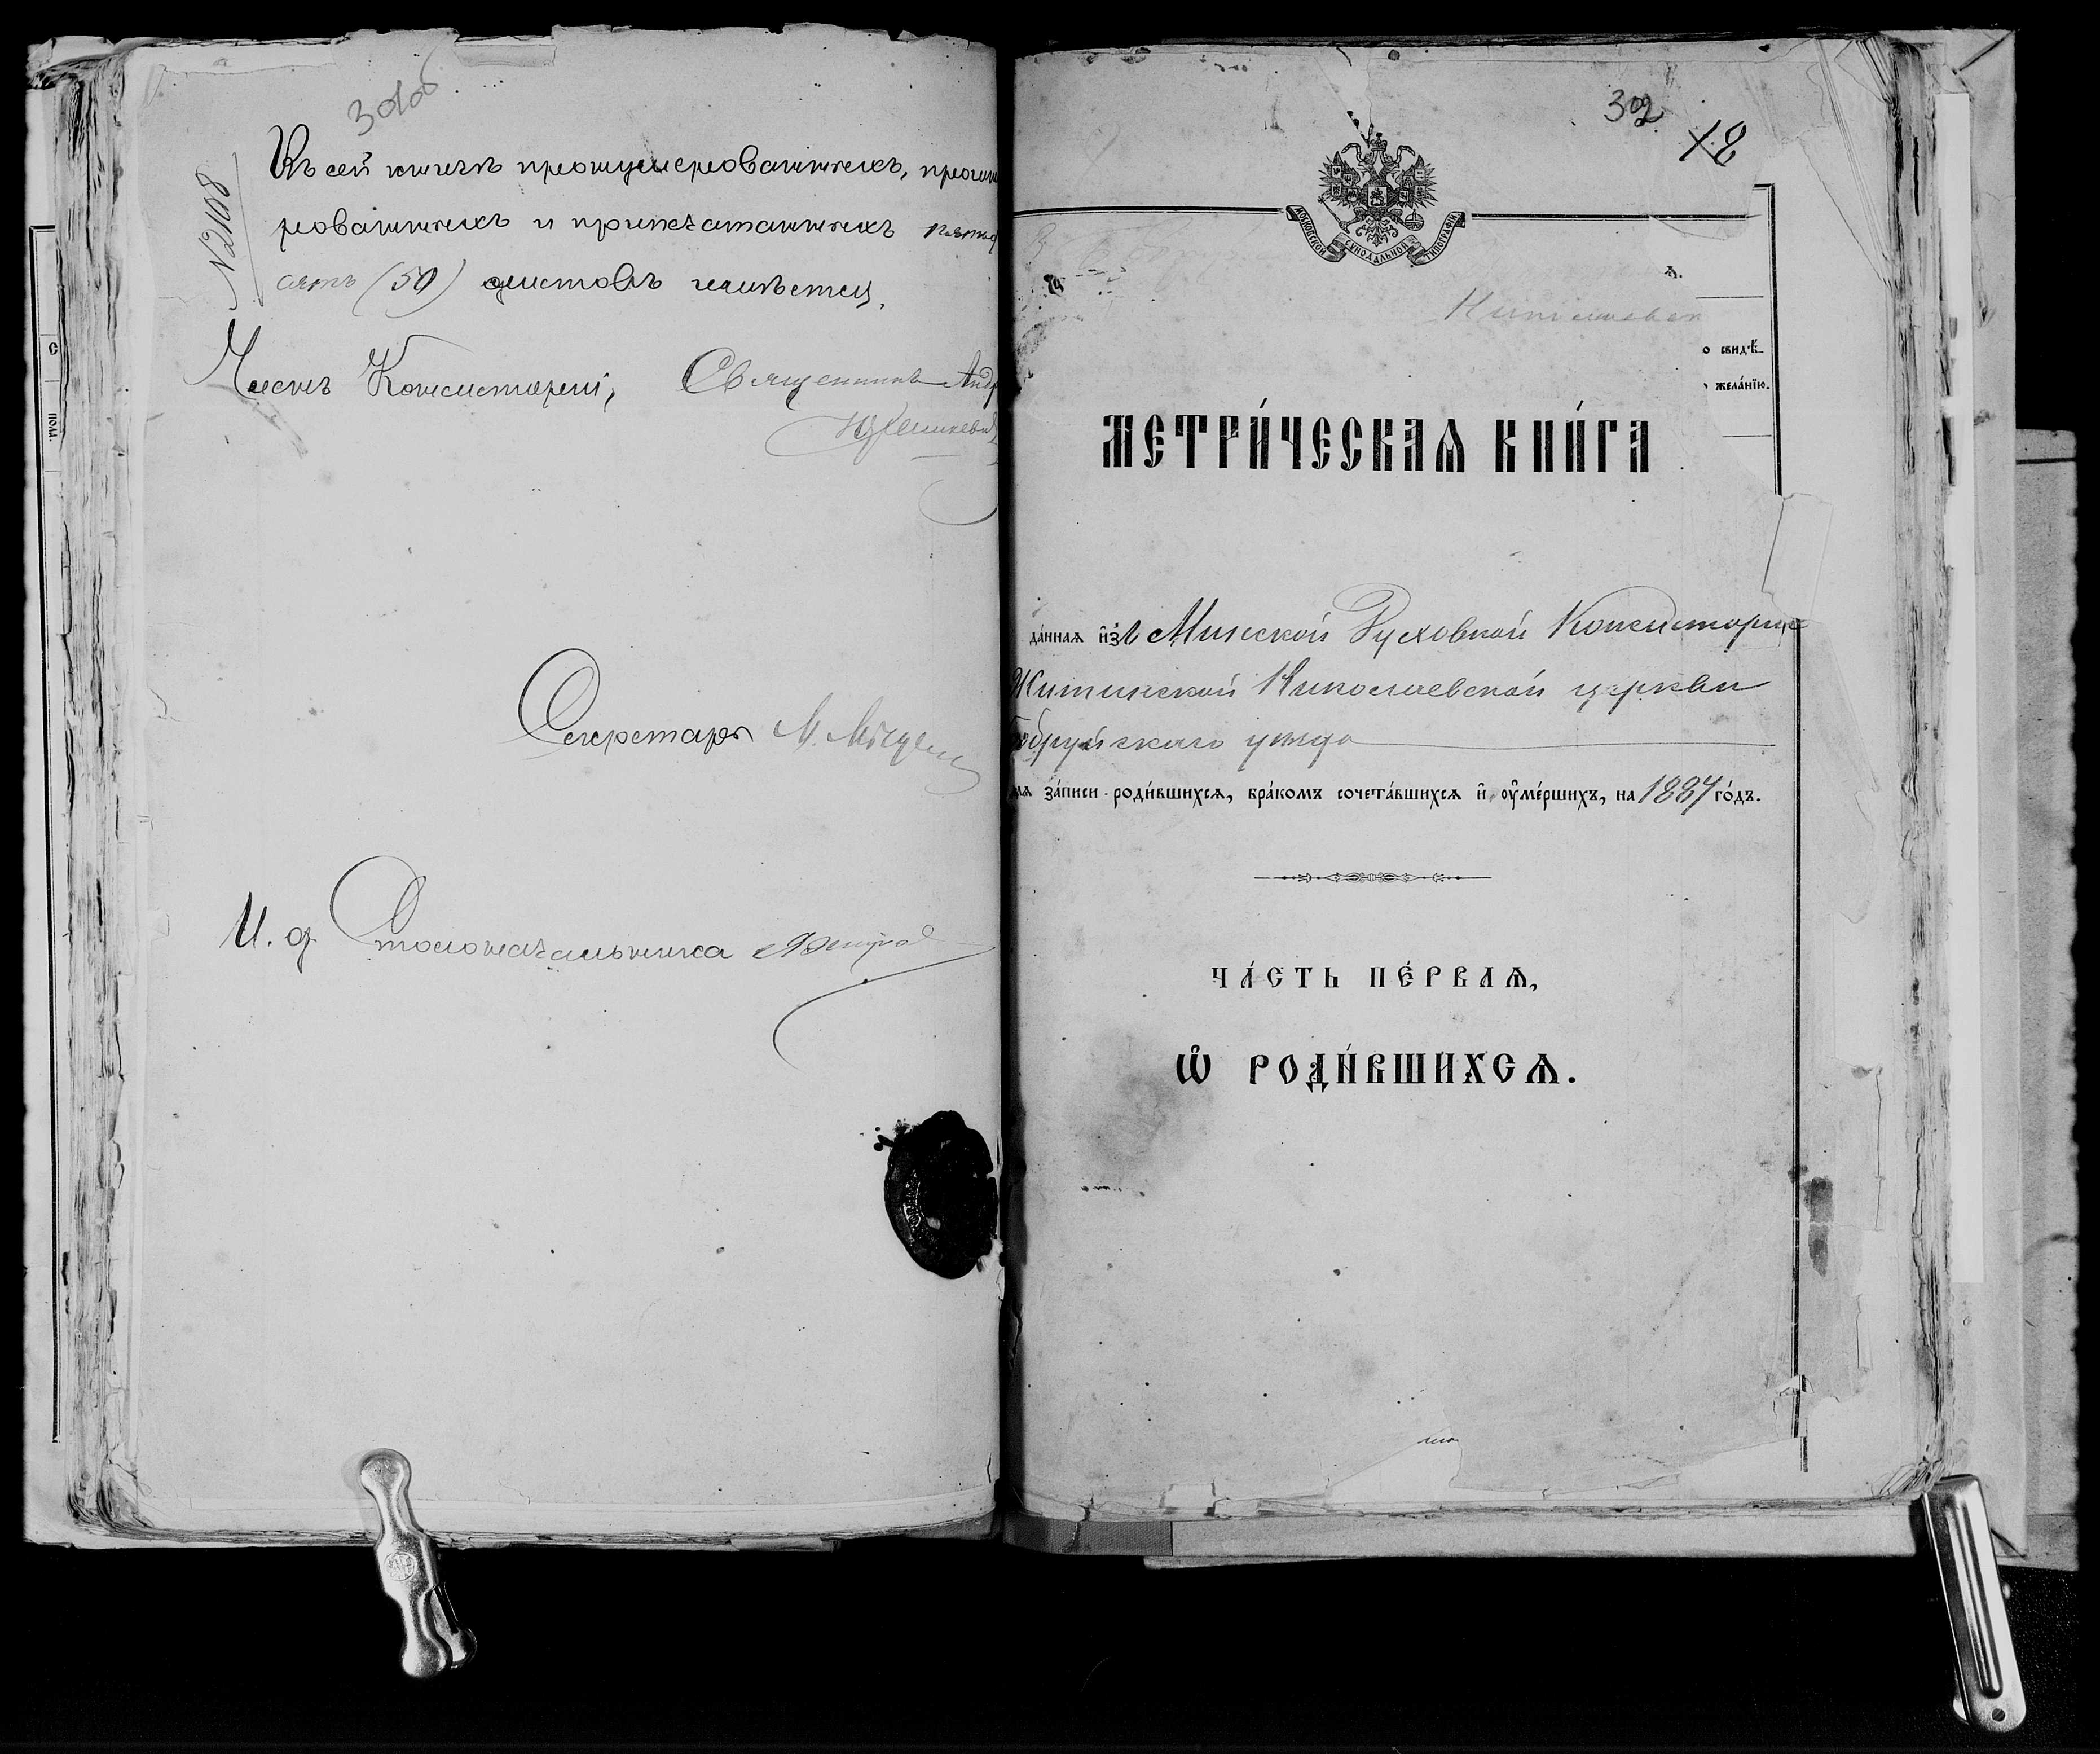 301об
№2108
Въ сей книгѣ пронумерованныхъ, прошну
рованныхъ и припечатанныхъ пятьд
сятъ (50) листовъ имѣется.
Членъ Консисторіи, Священникъ Анд
Юзкевичъ
Секретарь М.
И. д. Столоначальника
С
ПОЛА.
302
18
МОСКОВСКОЙ СѴНОДАЛЬНОЙ ТИПОГРАФІИ
ѧ.
о свидѣ-
желáнїю.
МЕТРИ́ЧЕСКАѦ КНИ́ГА
дáннаѧ и҆зъ Минской Духовной Консисторіи
Житинской Николаевской церкви
Бобруйскаго уѣзда
длѧ зáписи роди́вшихсѧ, брáкомъ сочетáвшихсѧ и҆ ᲂу҆мéршихъ, на 1887 го́дъ.
ЧА́СТЬ ПЕ́РВАѦ,
Ѡ҆ РОДИ́ВШИХСѦ.